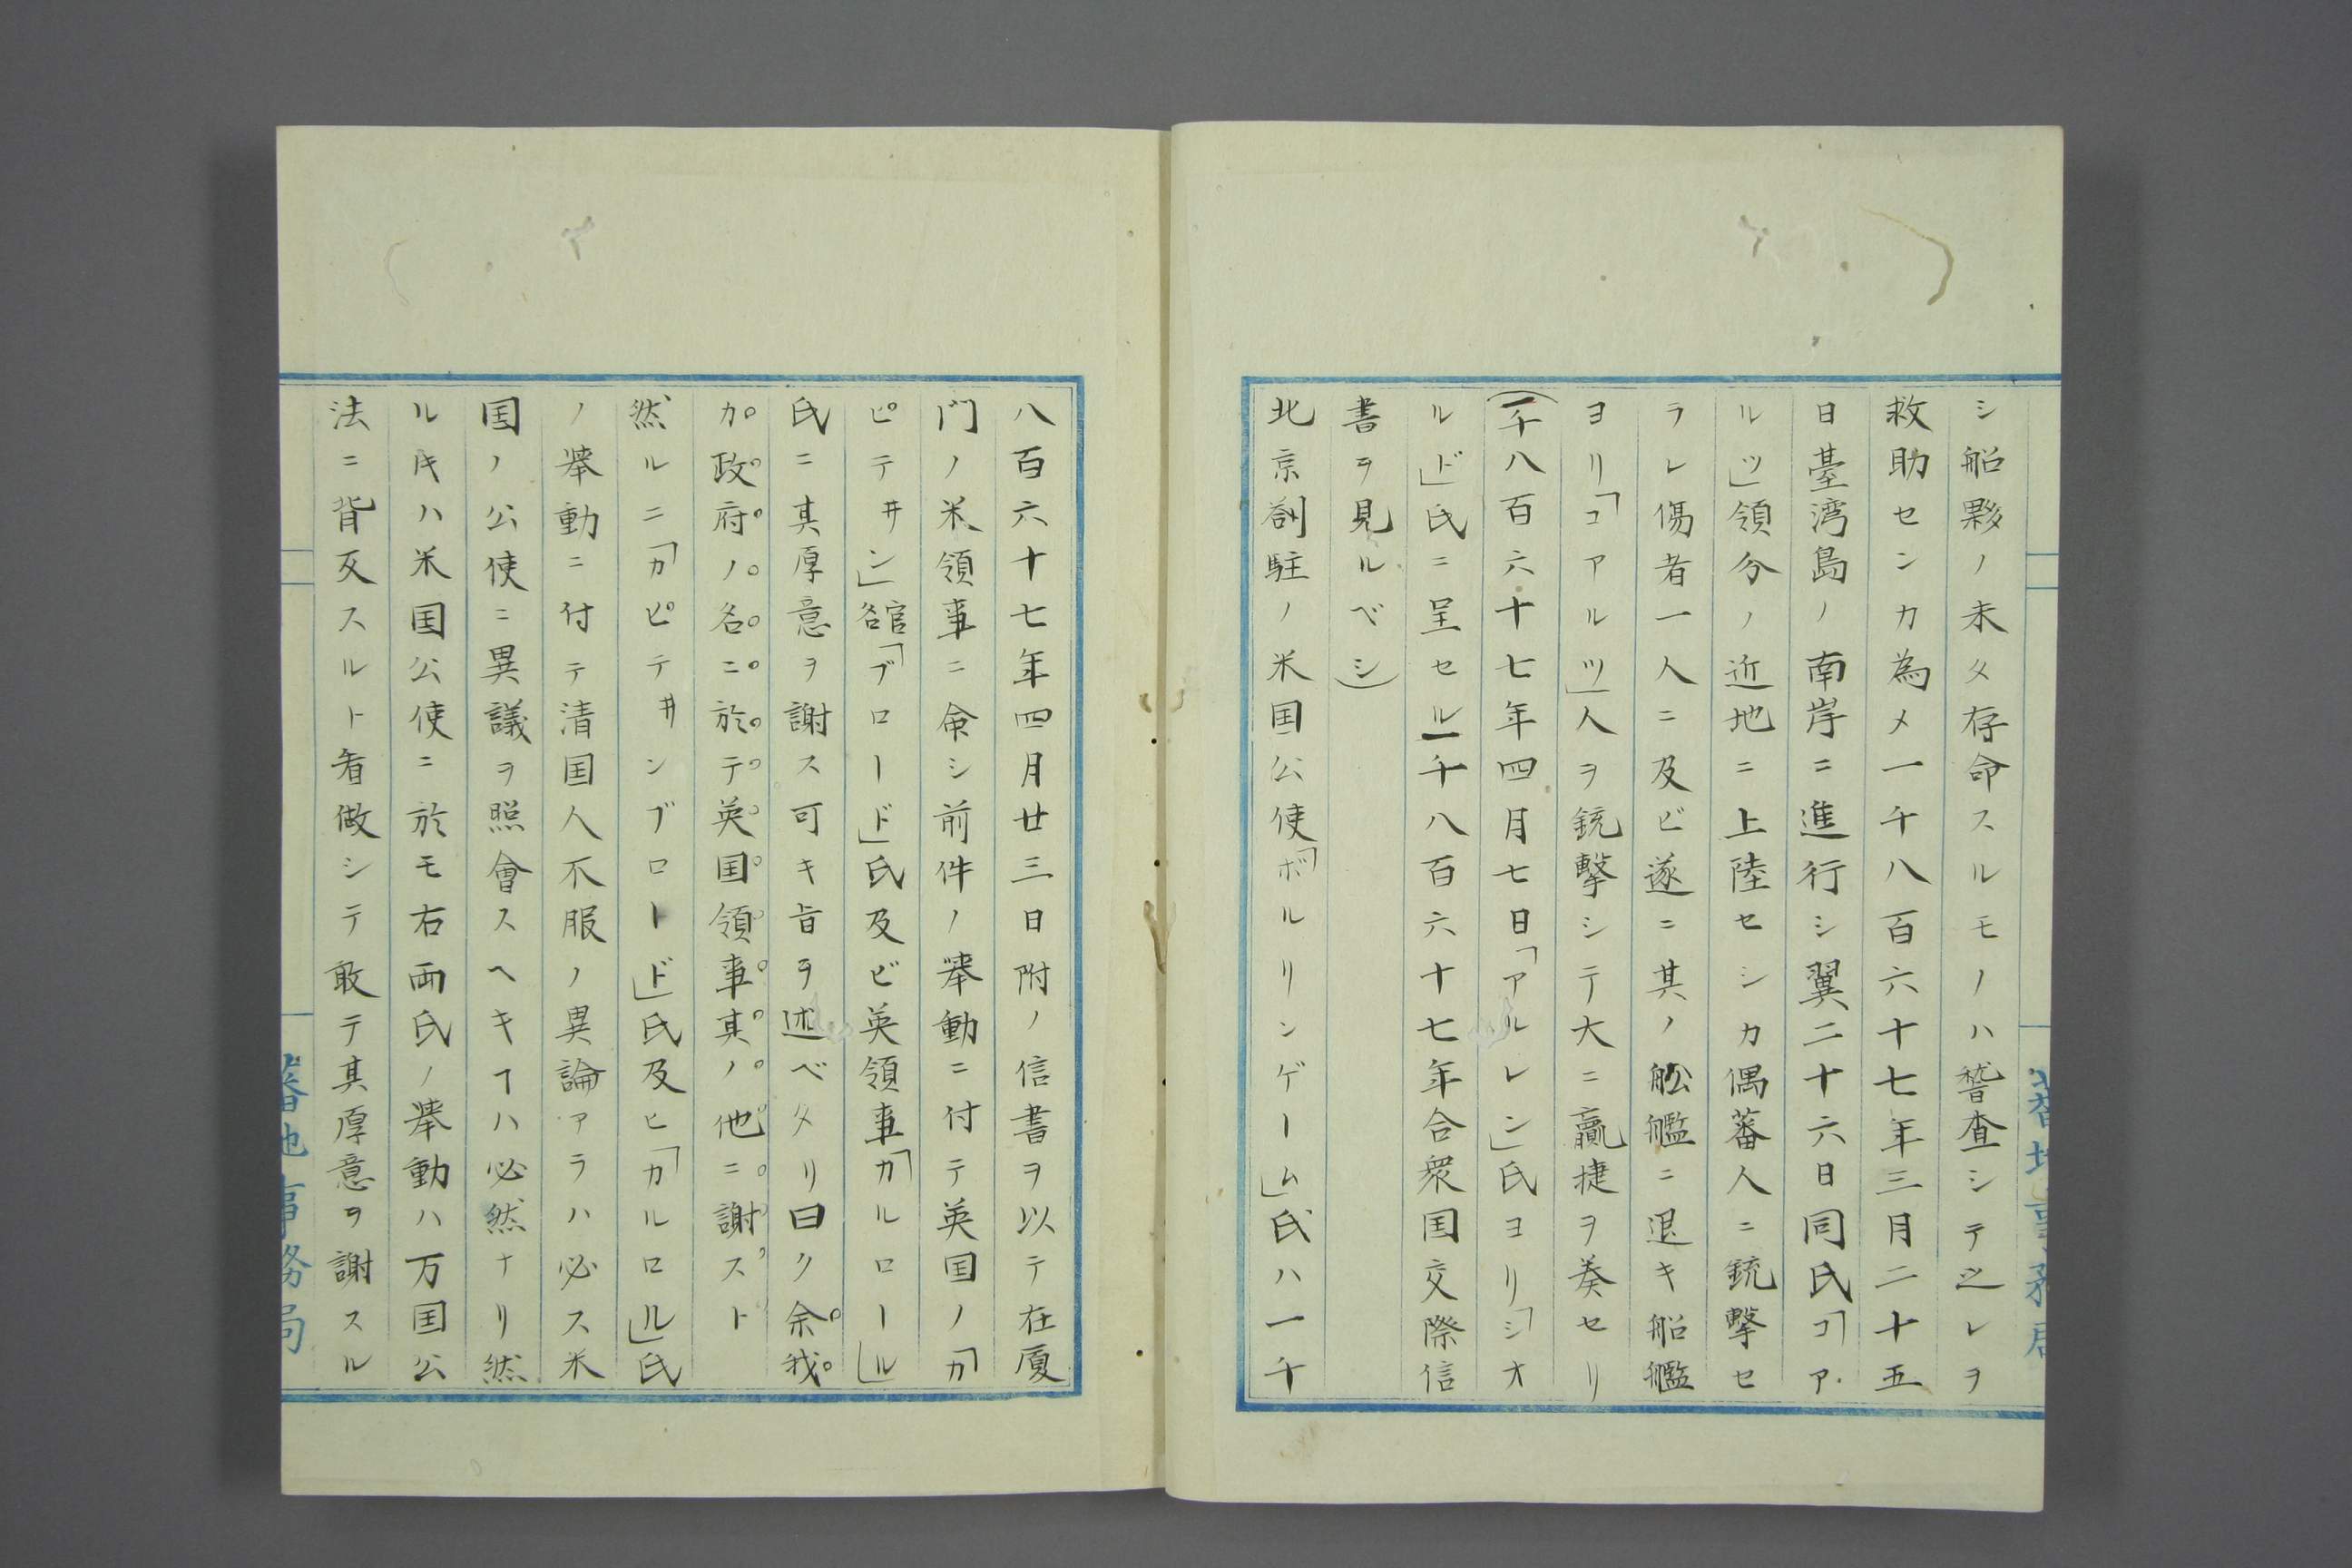 シ船夥ノ未タ存命スルモノハ稽査シテ之レヲ
救助センカ為メ一千八百六十七年三月二十五
日臺湾島ノ南岸ニ進行シ翼二十六日同氏「コア
ルツ」領分ノ近地ニ上陸セシカ偶蕃人ニ銃撃セ
ラレ傷者一人ニ及ビ遂ニ其ノ舩艦ニ退キ船艦
ヨリ「コアルツ」人ヲ銃撃シテ大ニ贏捷ヲ奏セリ
(一千八百六十七年四月七日「アルレン」氏ヨリ「シオ
ルド」氏ニ呈セル一千八百六十七年合衆国交際信
書ヲ見ルベシ)
北京劄駐ノ米国公使「ボルリンゲーム」氏ハ一千
八百六十七年四月廿三日附ノ信書ヲ以テ在厦
门ノ米領事ニ命シ前件ノ挙動ニ付テ英国ノ「カ
ピテヰン」舘「ブロード」氏及ビ英領事「カルロール」
氏ニ其厚意ヲ謝ス可キ旨ヲ述ベタリ曰ク余我
カ政府ノ名ニ於テ英国領事其ノ他ニ謝スト
然ルニ「カピテヰンブロード」氏及ヒ「カルロル」氏
ノ挙動ニ付テ清国人不服ノ異論アラハ必ス米
国ノ公使ニ異議ヲ照會スヘキヿハ必然ナリ然
ルキハ米国公使ニ於モ右両氏ノ挙動ハ万国公
法ニ背反スルト看做シテ敢テ其厚意ヲ謝スル
蕃地事務局
蕃地事務局